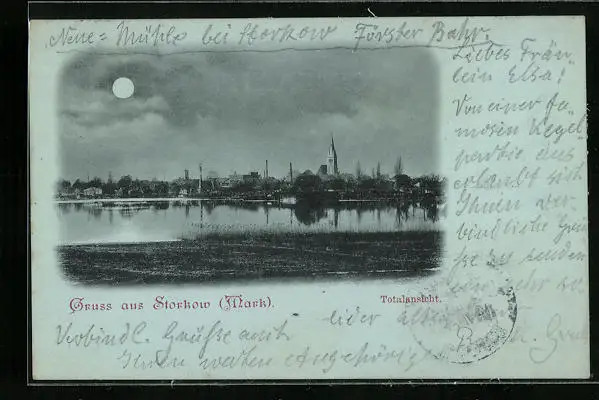 Neue = Mühle bei Storkow Förster Bahr.
Liebes Fräu-
lein Elsa!
Von einer fa-
mosen Kegel-
partie aus
erlaubt sich
Ihnen ver-
bindliche Grüs-
se zu senden
sehr
Gruss aus Storkow (Mark).
Totalansicht.
Verbindl. Grüsse
Ihnen werten Angehörigen